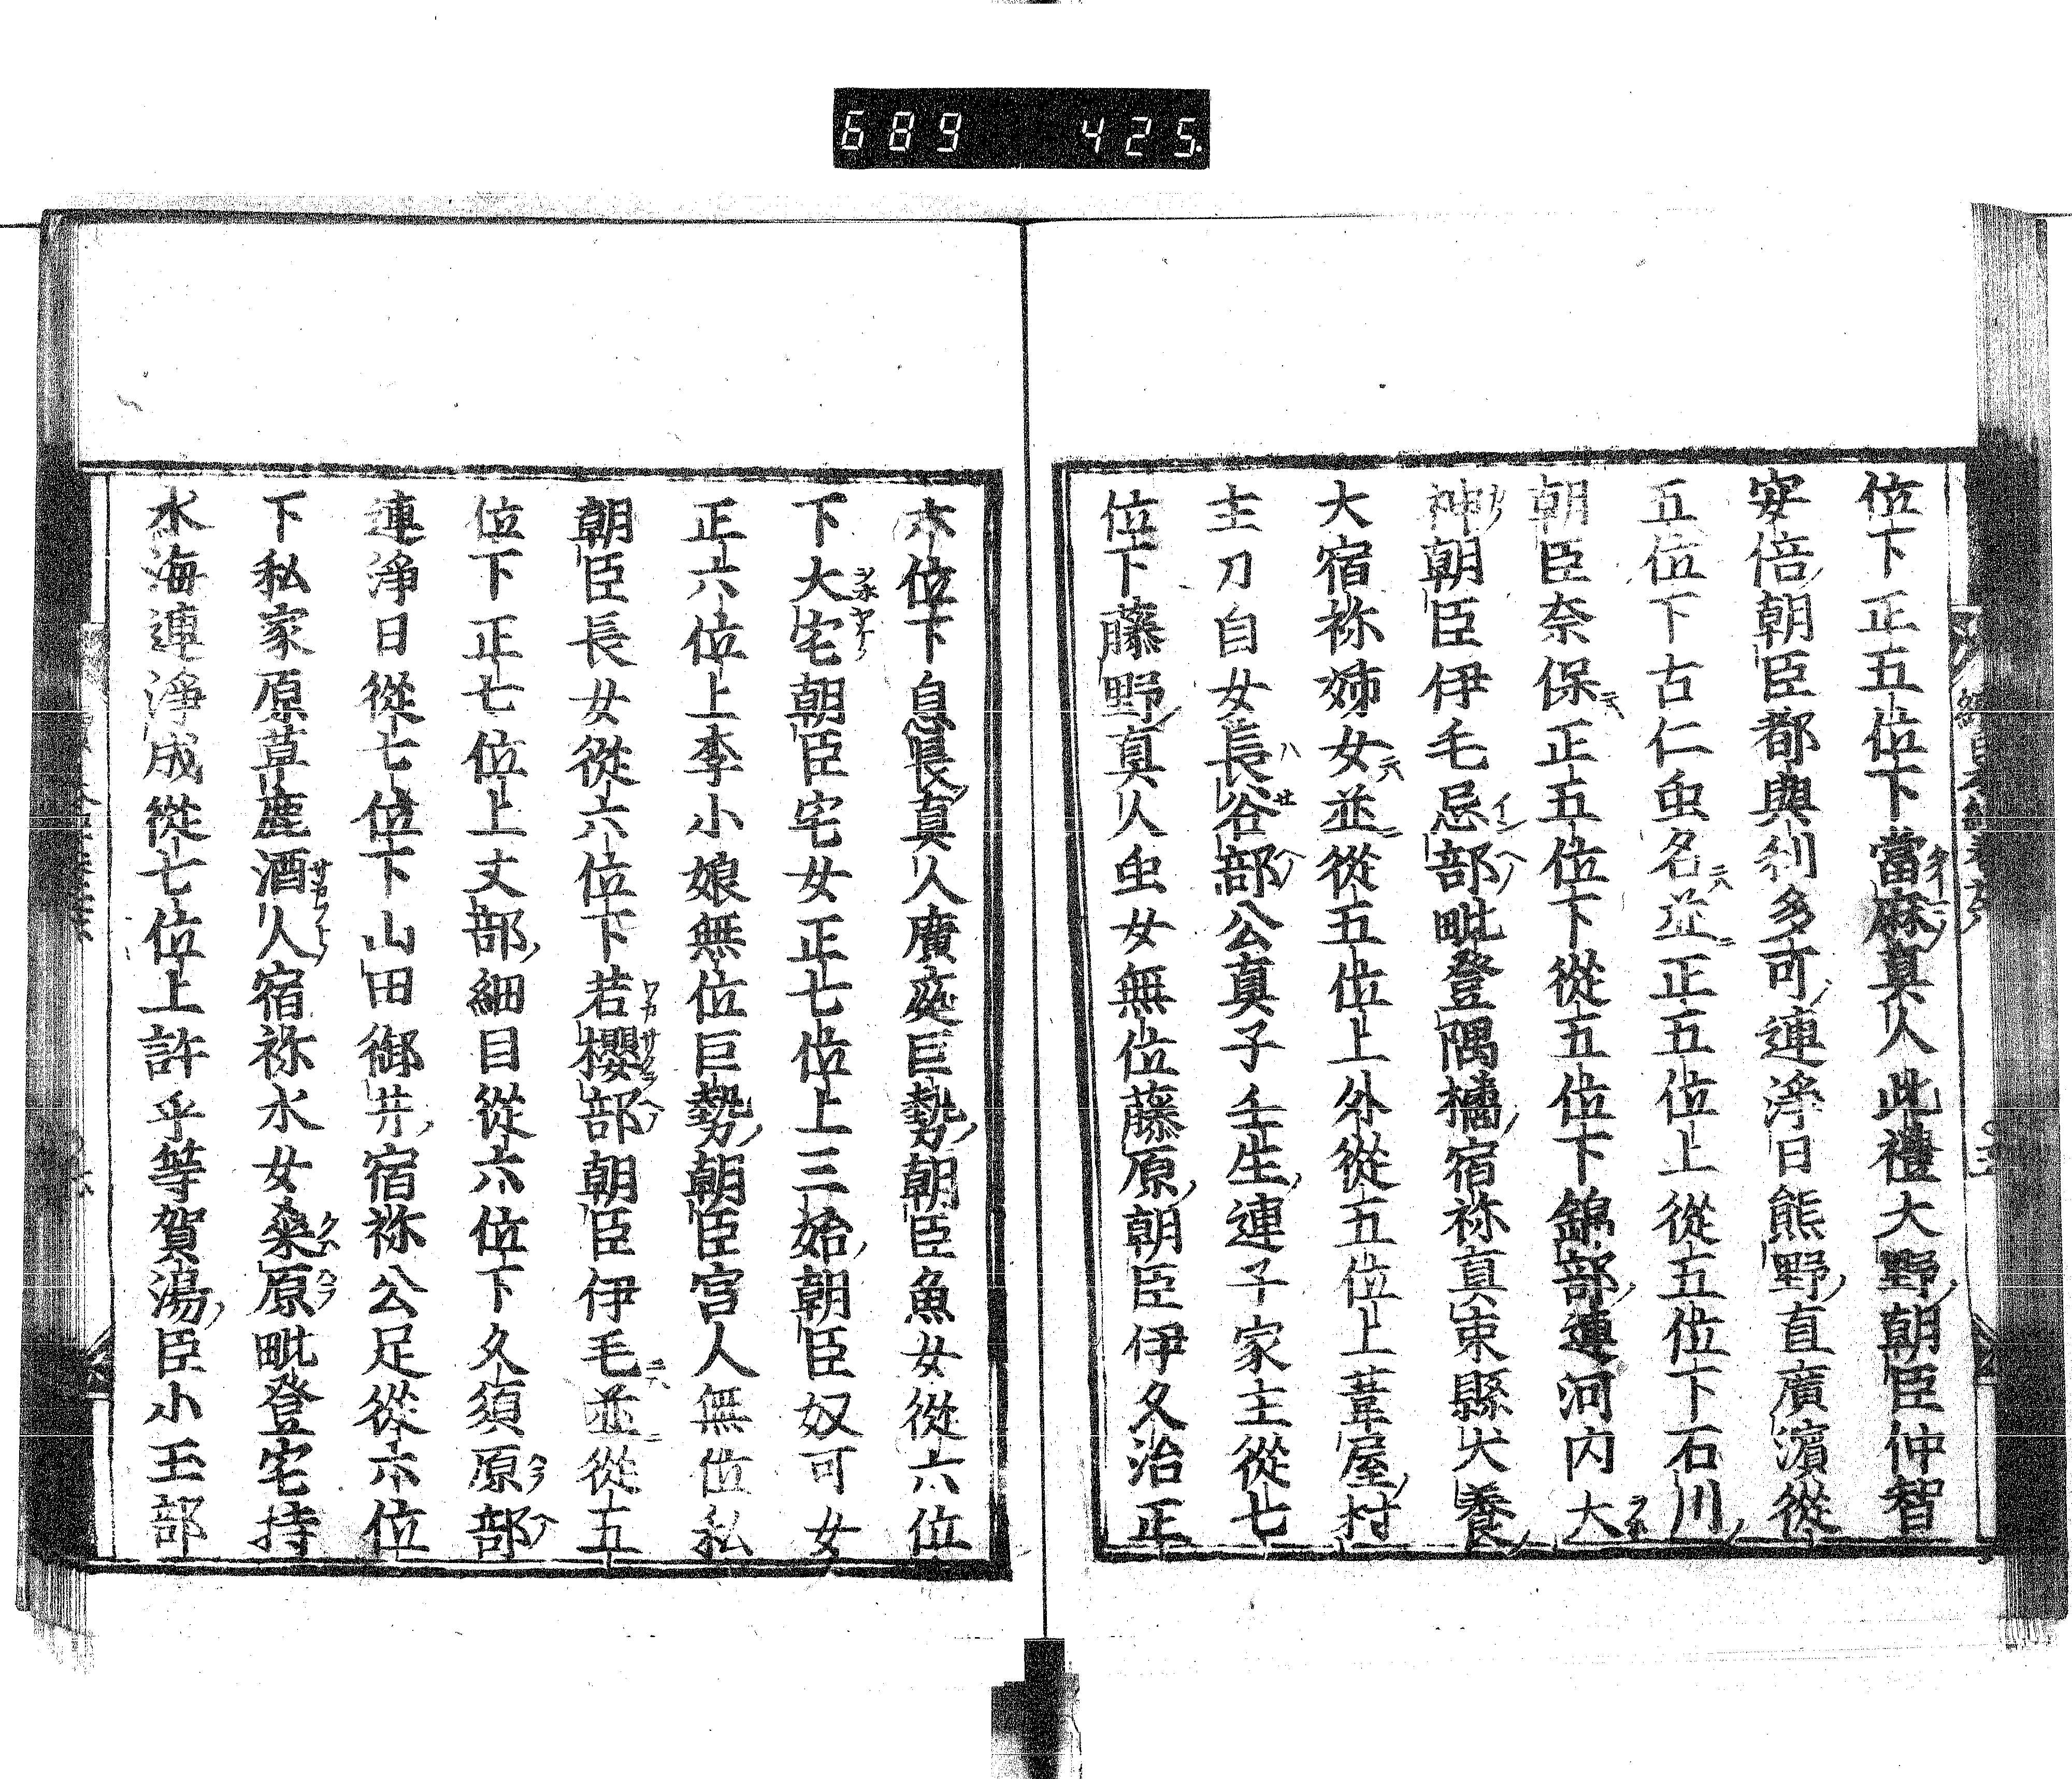 689 425.
位下正五位下當麻真人比禮大野朝臣仲智
安倍朝臣都與利多可連淨日熊野直廣濱從
五位下古仁虫名並正五位上從五位下石川
朝臣奈保正五位下從五位下錦部連河內大
神朝臣伊毛忌部毗登隅橘宿祢真束縣犬養
大宿祢姉女並從五位上外從五位上葦屋村
主刀自女長谷部公真子壬生連子家主從七
位下藤野真人虫女無位藤原朝臣伊久治正
六位下息長真人廣庭巨勢朝臣魚女從六位
下大宅朝臣宅女正七位上三始朝臣奴可女
正六位上李小娘無位巨勢朝臣宮人無位私
朝臣長女從六位下若櫻部朝臣伊毛並從五
位下正七位上丈部細目從六位下久須原部
連淨日從七位下山田御井宿祢公足從六位
下私家原草麻酒人宿祢水女桑原毗登宅持
水海連淨成從七位上許乎等賀湯臣小玉部